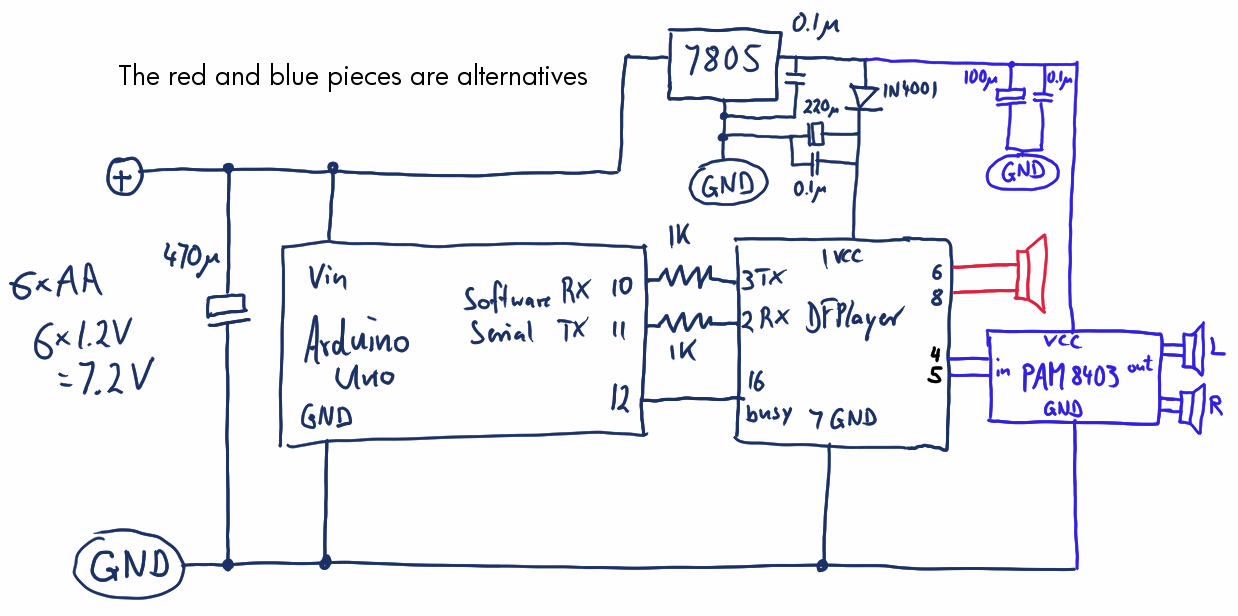 The red and blue pieces are alternatives
7805
0.1μ
1N4001
220μ
0.1μ
GND
100μ
0.1μ
GND
+
470μ
6×AA
6×1.2V
=7.2V
GND
Vin
Arduino
Uno
GND
Software RX 10
Serial TX 11
12
1K
1K
1 VCC
3 TX
2 RX
DFPlayer
16
busy
7 GND
6
8
4
5
VCC
in PAM 8403 out
GND
L
R